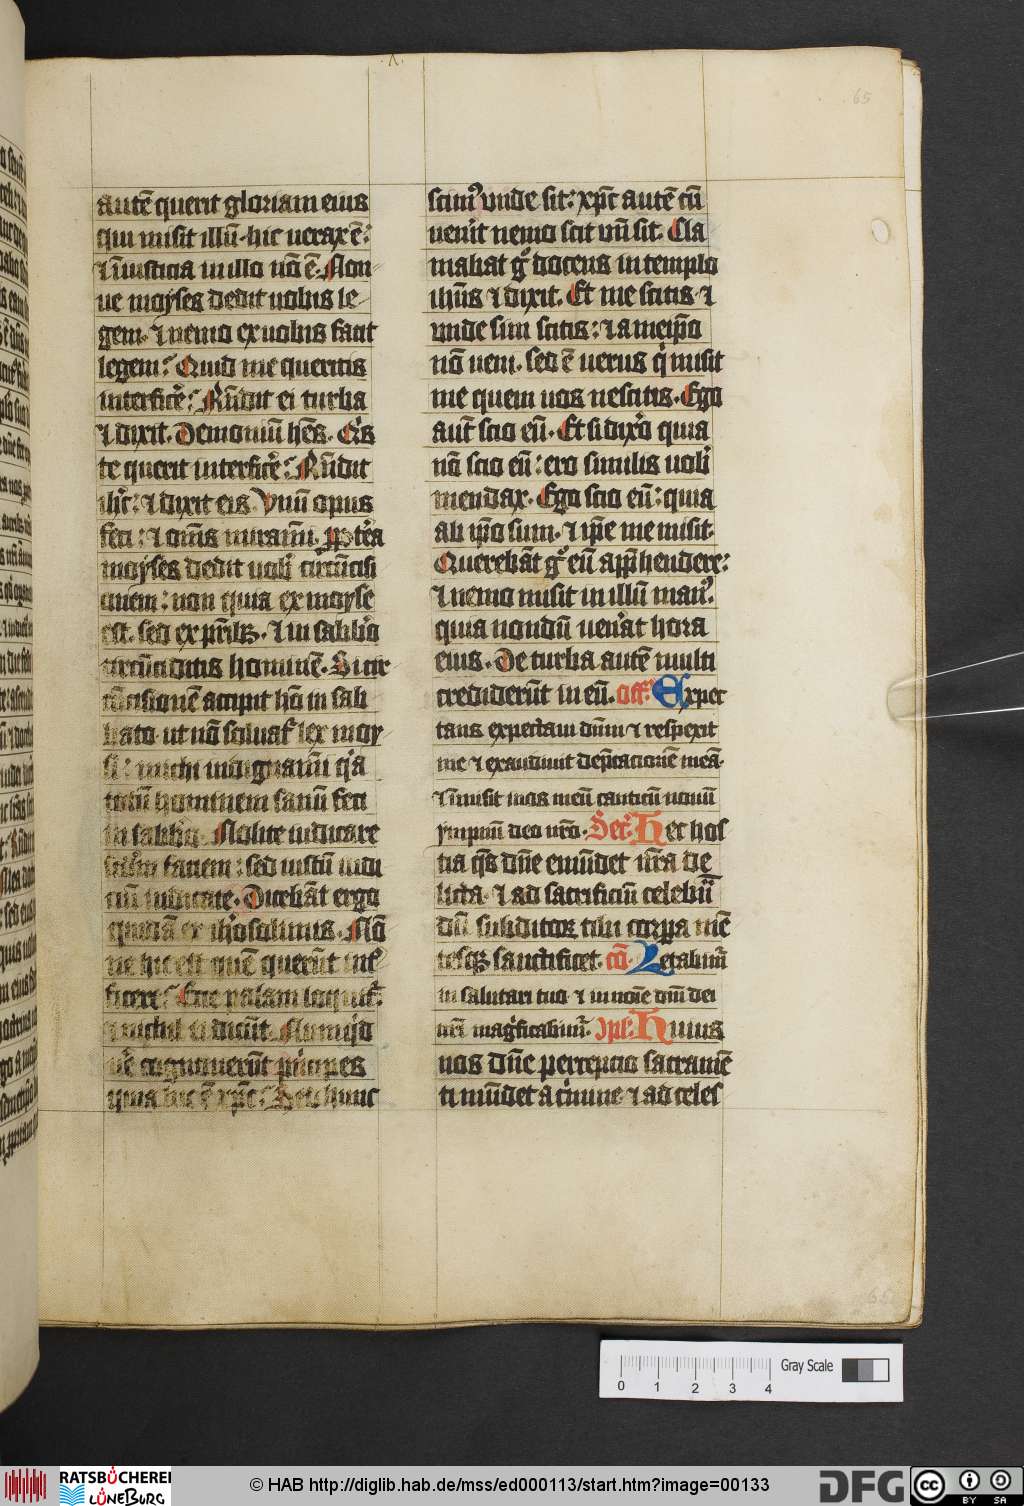 65
autē querit gloriam eius
qui misit illū · hic uerax ē :
⁊ iniusticia in illo nō ē · Non
ne moyses dedit uobis le
gem · ⁊ nemo ex uobis facit
legem : Quid me queritis
interfice᷑ : Rn̄dit ei turba
⁊ dixit · Demoniū hēs · Qⁱs
te querit interfice᷑ : Rn̄dit
ihc̄ : ⁊ dixit eis Vnū opus
feci : ⁊ om̄s miram̄i · ꝓpt̾ea
moyses dedit uobˡ circūcisi
onem : non quia ex moyse
est · sed ex pr̄ibꝫ · ⁊ in sabb̾o
circūciditis hominē · Si cir
cūcisionē accipit hō in sab
bato · ut nō soluat᷑ lex moy
si : michi indignam̄i qⁱa
totū hominem sanū feci
in sabb̾o · Nolite iudicare
scd̾m faciem : sed iustū iudi
ciū iudicate · Dicebāt ergo
quidā ex ih̾osolimis · Nō
ne hic est quē querūt int̾
ficere : Ecce palam loquit᷑ :
⁊ nichil ei dicūt · Nūqⁱd
ue᷑ cognouerūt pⁱncipes
quia hic ē xp̄c : Sed hunc
scimꝰ vnde sit : xp̄c autē cū
uen̾it nemo scit vn̄ sit · Cla
mabat gͦ docens in templo
ih̄us ⁊ dixit · Et me scitis ⁊
vnde sim scitis : ⁊ a meip̄o
nō ueni · sed ē uerus qⁱ misit
me quem uos nescitis · Ego
aut̄ scio eū · Et si dix̾o quia
nō scio eū : ero similis uobˡ
mendax · Ego scio eū : quia
ab ip̄o sum · ⁊ ip̄e me misit ·
Querebāt gͦ eū app̄hendere :
⁊ nemo misit in illū manꝰ ·
quia nondū uen̾at hora
eius · De turba autē multi
crediderūt in eū · off᷑ · Expec
tans expectaui dn̄m ⁊ respexit
me ⁊ exaudiuit dep̄cacionē meā ·
⁊ īmisit in os meū canticū nouū
ympnū deo nr̄o · Secˀ · Hec hos
tia qs̄ dn̄e emūdet nr̄a de
licta · ⁊ ad sacrificiū celebrā
dū subditoꝝ tibi corꝑa mē
tesqꝫ sanctificet · cō · Letabim᷑
in salutari tuo · ⁊ in noīe dn̄i dei
nr̄i magⁱficabim᷑ · 9plˀ · Huius
nos dn̄e percepcio sacramē
ti mūdet a cⁱmine · ⁊ ad celes
65
0 1 2 3 4
Gray Scale
RATSBÜCHEREI
LÜNEBURG
© HAB http://diglib.hab.de/mss/ed000113/start.htm?image=00133
DFG
cc BY SA